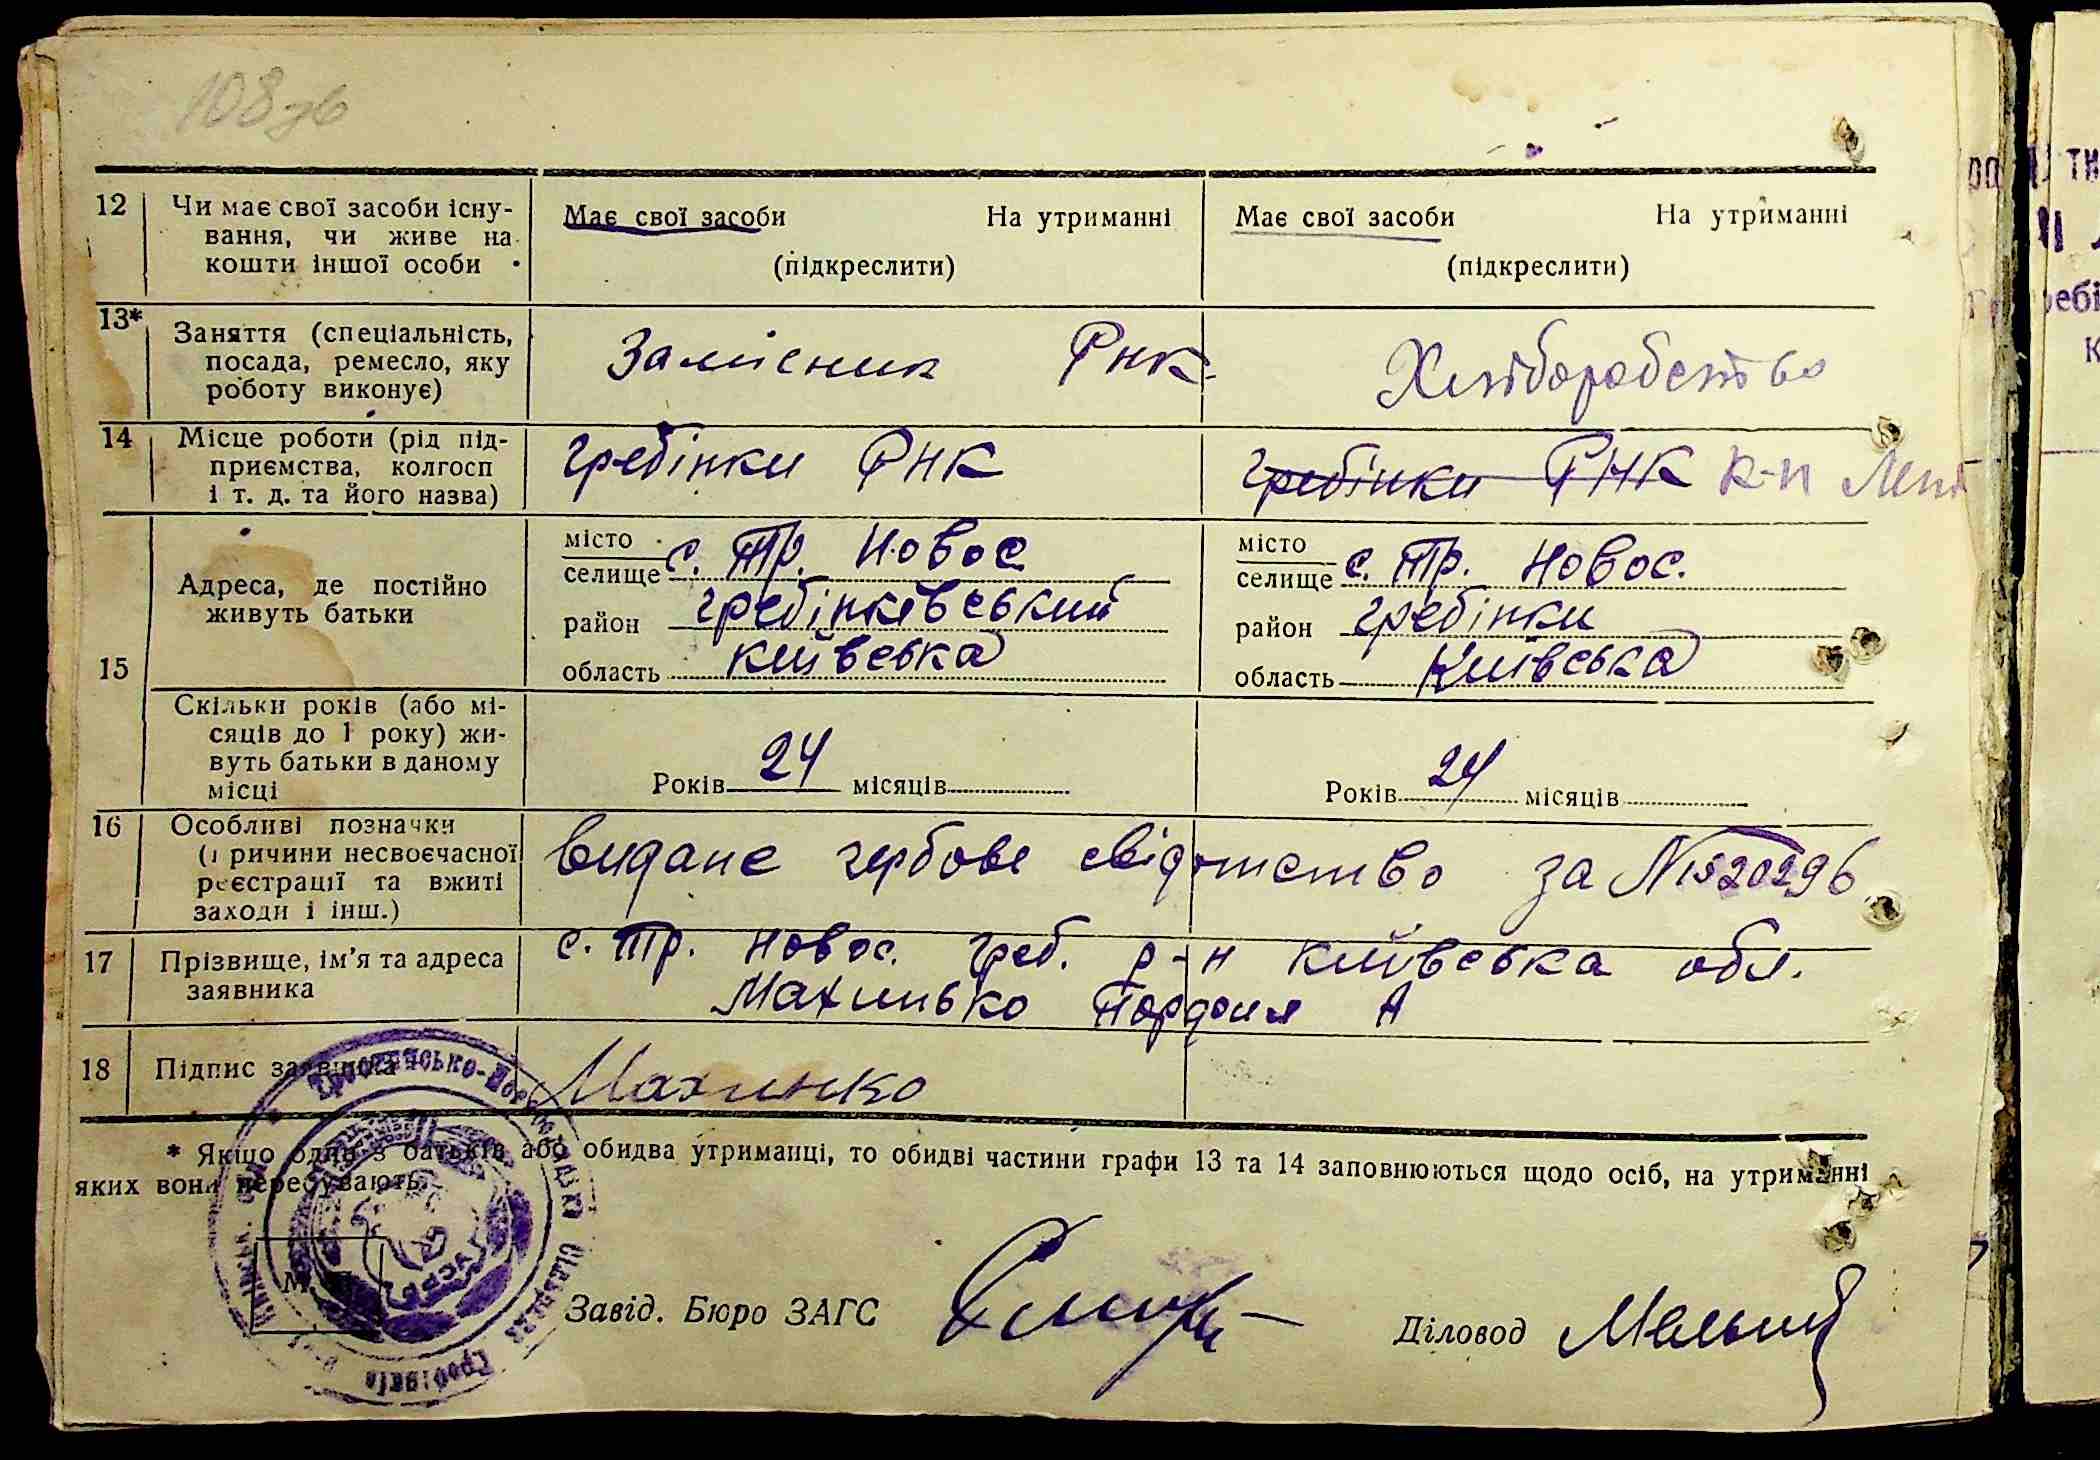 108зв
12 Чи має свої засоби існу-
вання, чи живе на
кошти іншої особи
Має свої засоби На утриманні
(підкреслити)
Має свої засоби На утриманні
(підкреслити)
13* Заняття (спеціальність,
посада, ремесло, яку
роботу виконує)
Замісник РНК
Хліборобство
14 Місце роботи (рід під-
приємства, колгосп
і т. д. та його назва)
гребінки РНК
гребінки РНК к-п
15 Адреса, де постійно
живуть батьки
місто
селище с. Тр. Новос
район гребінківський
область київська
місто
селище с. Тр. Новос.
район гребінки
область Київська
Скільки років (або мі-
сяців до 1 року) жи-
вуть батьки в даному
місці
Років 24 місяців
Років 24 місяців
16 Особливі позначки
(причини несвоєчасної
реєстрації та вжиті
заходи і інш.)
видане гербове свідотство за N1520296
17 Прізвище, ім'я та адреса
заявника
с. Тр. Новос. греб. р-н київська обл.
Махинько А
18 Підпис заявника
Махинко
* Якщо один з батьків або обидва утриманці, то обидві частини графи 13 та 14 заповнюються щодо осіб, на утриманні
яких вони перебувають.
УСРР
Завід. Бюро ЗАГС
Діловод